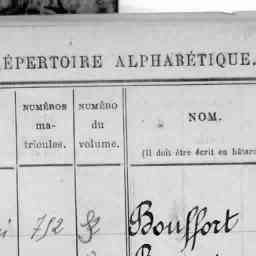 RÉPERTOIRE ALPHABÉTIQUE.
NUMÉROS
ma-
tricules.
NUMÉRO
du
volume.
NOM.
(Il doit être écrit en bâtar
752 Bouffort